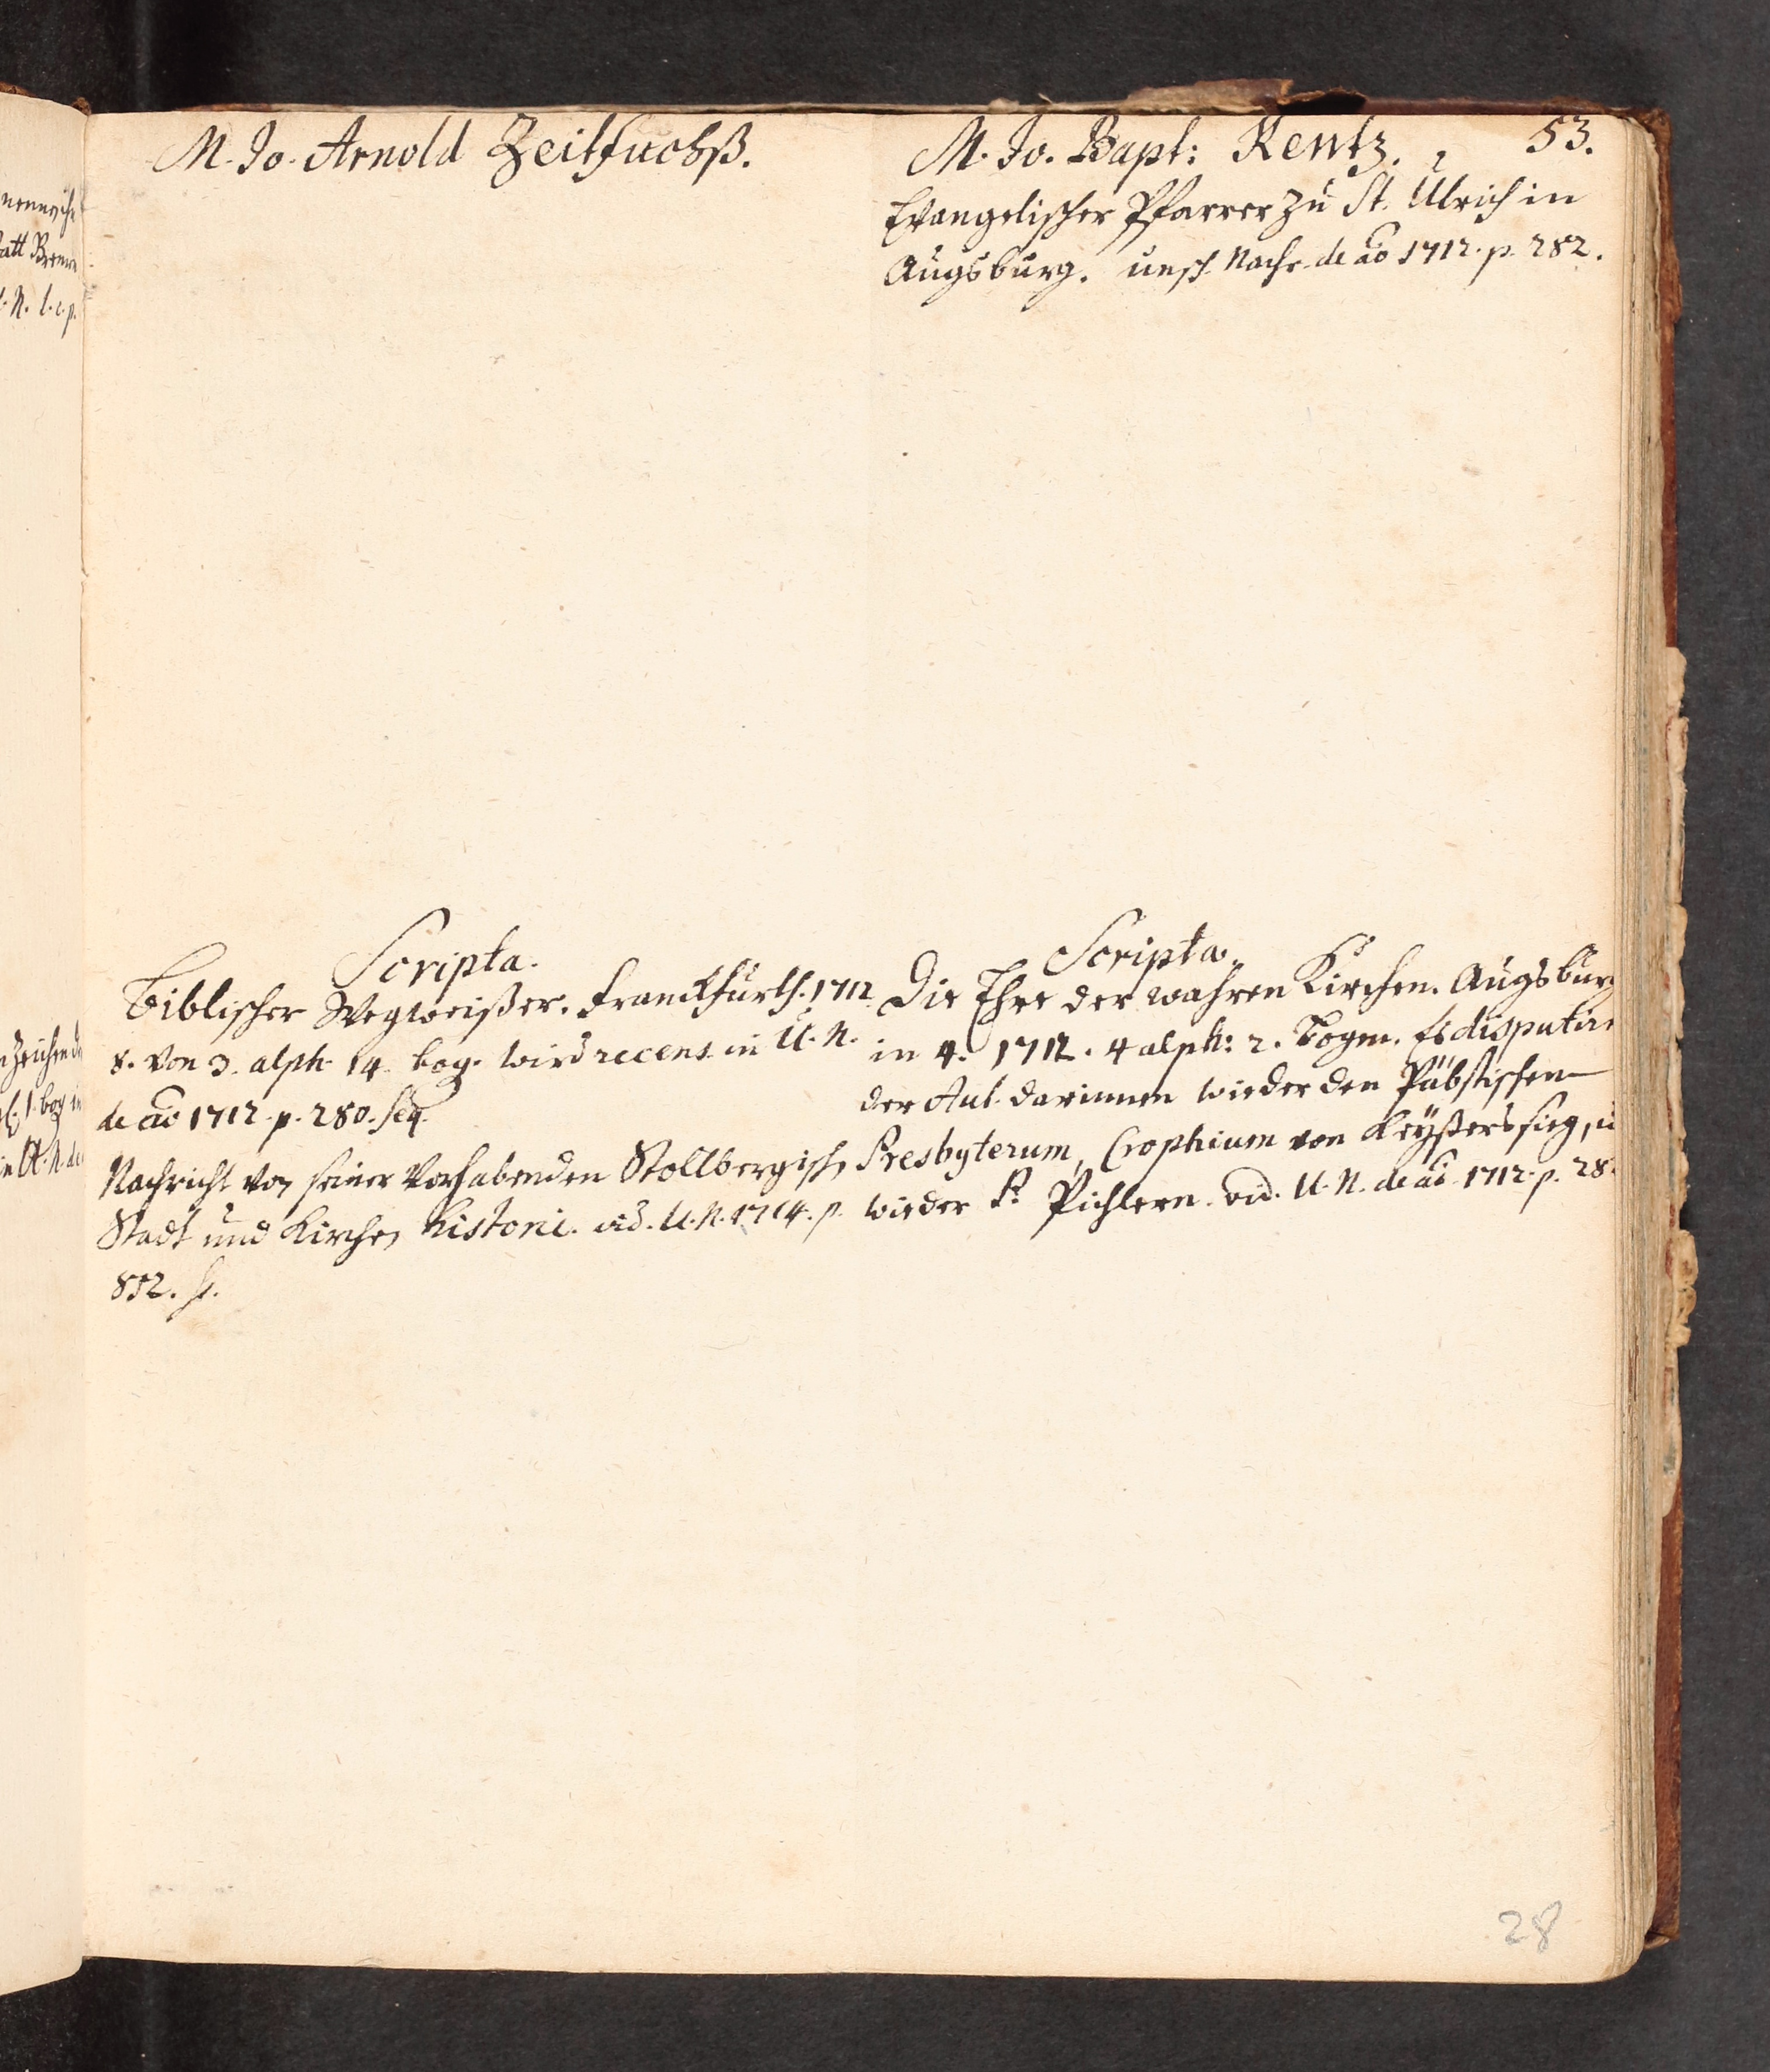 M. Jo. Arnold Zeitfuchß.
Scripta.
Biblischer Wegweißer. Franckfurth. 1712
8. von 3. alph. 14. bog. wird recens. in U. N.
de ao 1712. p. 280. seq.
Nachricht von seiner vorhabenden Stollbergisch
Stadt und Kirchen historie. vid. U. N. 1714. p.
852. s.
M. Jo. Bapt: Rentz. 53.
Evangelischer Pfarrer zu St. Ulrich in
Augsburg. unsch. Nachr. de ao 1712. p. 282.
Scripta.
Die Ehre der wahren Kirchen. Augsburg
in 4. 1712. 4 alph: 2. Bogen. Es disputire
der Aut. darinnen wieder den Päbstischen
Presbyterum, Crophium von Keyßers sieg, u
wieder P. Pichlern. vid. U. N. de ao 1712. p. 28
28